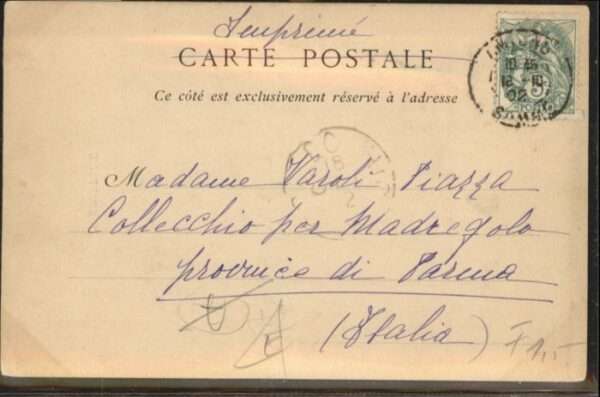 Imprimé
CARTE POSTALE
Ce côté est exclusivement réservé à l'adresse
10 12
02
SOMME
Madame Varoli Piazza
Collecchio per Madregolo
province di Parma
(Italia)